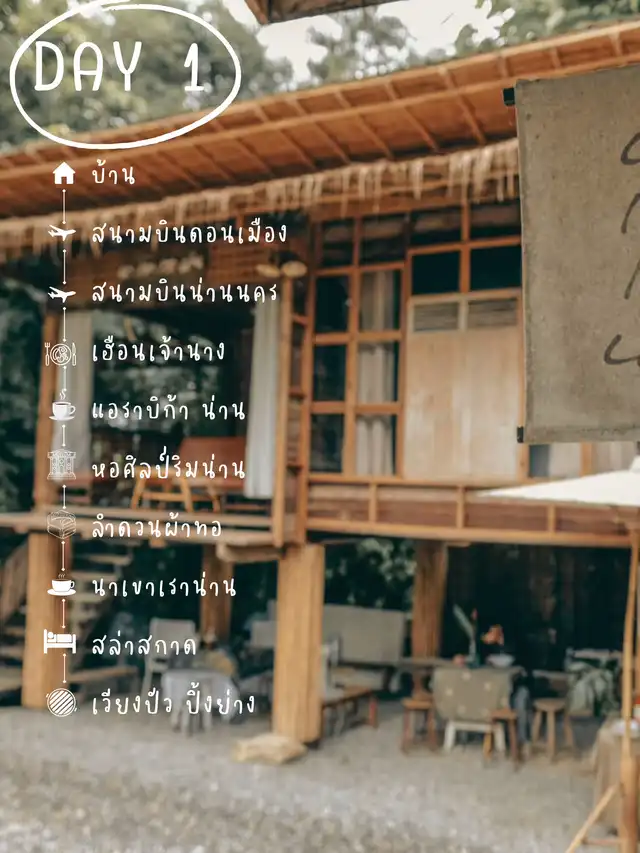 DAY 1
บ้าน
สนามบินดอนเมือง
สนามบินน่านนคร
เฮือนเจ้านาง
แอราบิก้า น่าน
หอศิลป์ริมน่าน
ลำดวนผ้าทอ
นาเขาเราน่าน
สล่าสกาด
เวียงปัว ปิ้งย่าง